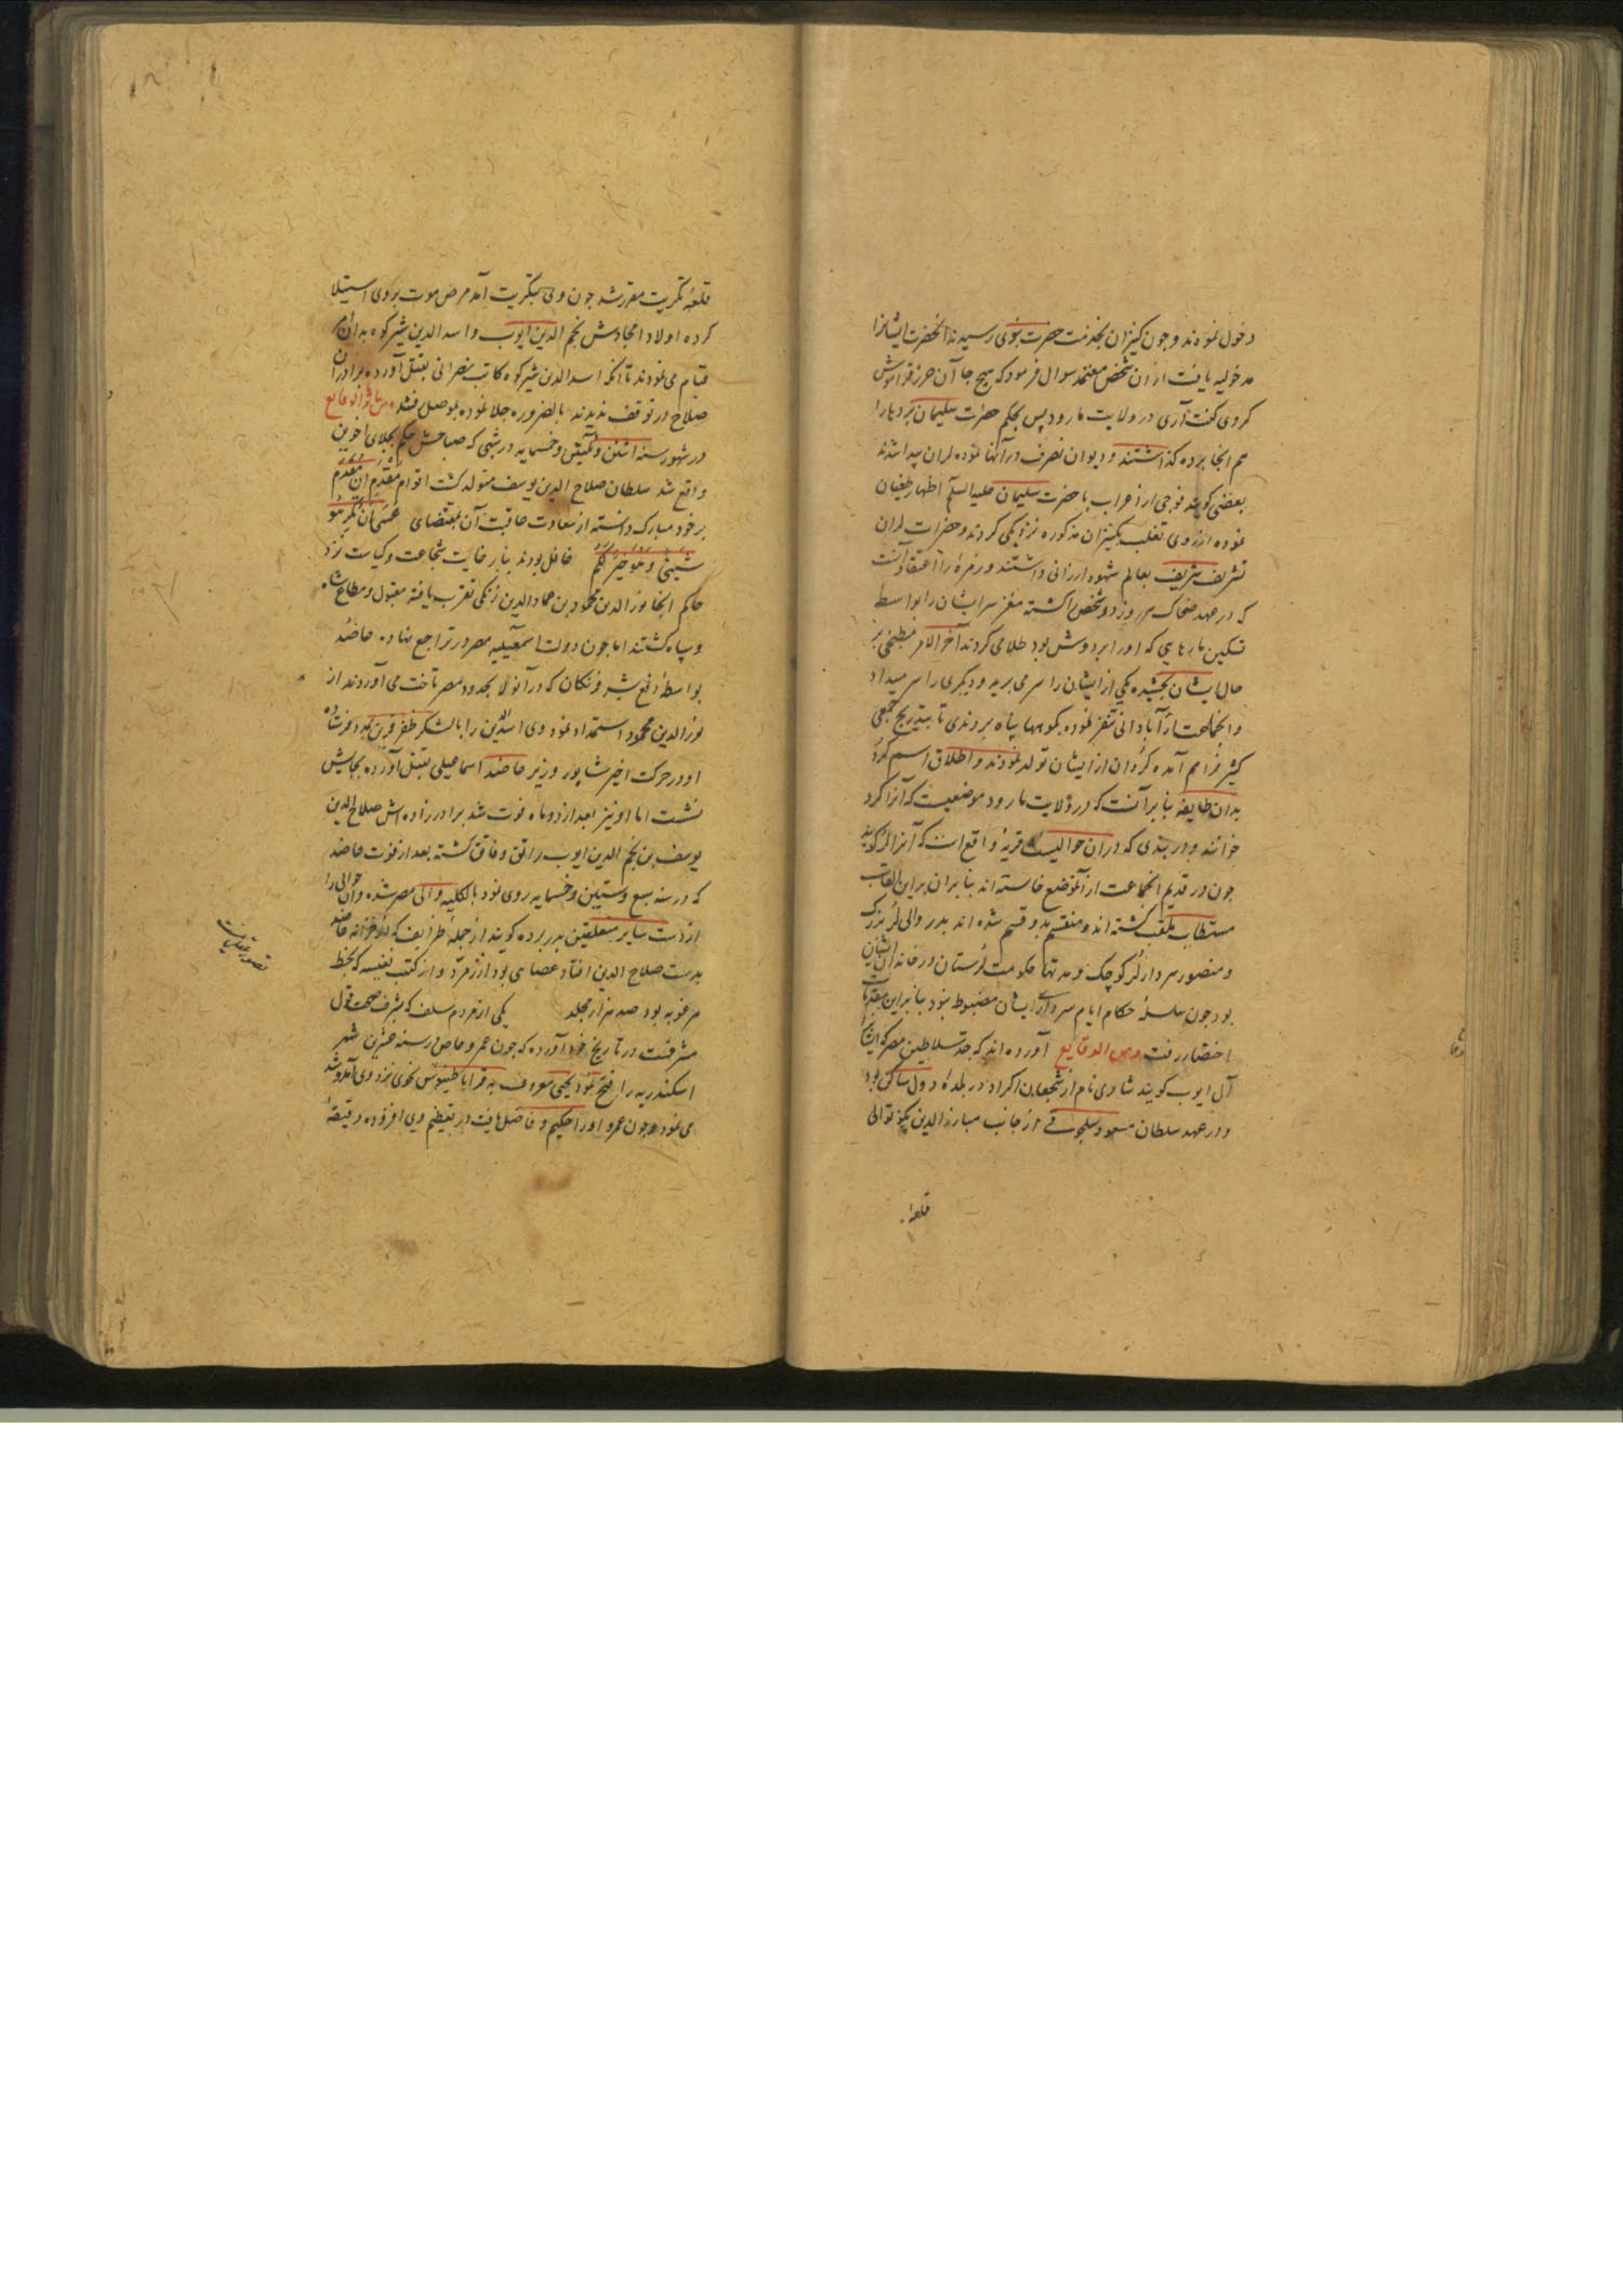 دخول نمودند و چون کنیزان بخدمت حضرت نبوی رسیدند آنحضرت ایشانرا
مدخولیه یافت از آن شخص معتمد سوال فرمود که هیچ جا آن حرز فراموش
کردی گفت آری در ولایت مارود پس بحکم حضرت سلیمان بردها را
هم انجا برده گذاشتند و دیوان تصرف در آنها نموده لران پیدا شدند
بعضی گویند فوجی از اعراب با حضرت سلیمان علیه السلم اظهار طغیان
نموده از روی تغلب بکنیزان مذکوره نزدیکی کردند و حضرات لران
تشریف شریف بعالم شهود ارزانی داشتند و زمرهٔ را اعتقاد آنست
که در عهد ضحاک هر روز دو شخص را کشته مغز سر ایشان را بواسطهٔ
تسکین مارهایی که او را بر دوش بود طلا می کردند آخر الامر مطبخی بر
حال ایشان بخشیده یکی از ایشان را سر می برید و دیگری را سر میداد
و انجماعت از آبادانی تنفر نموده بکوهها پناه بردندی تا بتدریج جمعی
کثیر فراهم آمده کُردان از ایشان تولد نمودند و اطلاق اسم کُرد
بدان طایفه بنابر آنست که در ولایت مارود موضعیست که آنرا کرد
خوانند و در بندی که در آن حوالیست قریهٔ واقع است که آنرا لر گویند
چون در قدیم انجماعت از آنموضع خاسته اند بنابران براین القاب
مستطاب ملقب گشته اند و منقسم بدو قسم شده اند بدر والی لُر بزرگ
و منصور سردار لُر کوچک و مدتها حکومت لُرستان در خاندان ایشان
بود چون سلسلهٔ حکام ایام سرداری ایشان مضبوط نبود بنابراین بمقدمات
اختصار رفت ومن الوقایع آورده اند که جد سلاطین مصر که ایشانرا
آل ایوب گویند شادی نام از شجعان اکراد در بلدهٔ دول ساکن بود
و در عهد سلطان مسعود سلجوقی از جانب مبارز الدین بکوتوالی
قلعهٔ
قلعهٔ تکریت مقرر شد چون وی بتکریت آمد مرض موت بر وی استیلا
کرده اولاد امجادش نجم الدین ایوب و اسد الدین شیرکوه بدان امر
قیام می نمودند تا آنکه اسد الدین شیرکوه کاتب نصرانی بقتل آورده برادران
صلاح در توقف ندیدند بالضروره جلا نموده بموصل فتند ومن الوقایع
در شهور سنه اثنین و ثلثین و خمسمایه در شبی که صباحش حکم بجلای اخوین
واقع شد سلطان صلاح الدین یوسف متولد گشت اقوام مقدم آن مقدم
بر خود مبارک دانسته از سعادت عاقبت آن بمقتضای عسی ان تکرهوا
شیئا و هو خیر لکم غافل بودند بنابر غایت شجاعت و کیاست نزد
حاکم انجا نور الدین محمود بن عماد الدین زنکی تقرب یافته مقبول و مطاع شاه
و سپاه گشتند اما چون دولت اسمعیلیه مصر در تراجع نهاده عاضد
بواسطهٔ دفع شر فرنکان که در آنولا بحدود مصر تاخت می آوردند از
نور الدین محمود استمداد نمود وی اسد الدین را با لشکر ظفر قرین بمدد فرستاده
او در حرکت اخیر شاپور وزیر عاضد اسماعیلی بقتل آورده بجایش
نشست اما او نیز بعد از دو ماه فوت شد برادر زاده اش صلاح الدین
یوسف بن نجم الدین ایوب راتق و فاتق گشته بعد از فوت عاضد
که در سنه سبع و ستین و خمسمایه روی نمود بالکلیه والی مصر شده وان حوالی را
از دست سایر متغلبین بدر برده گویند از جملهٔ ظرایف که از خزانه عاضد
بدست صلاح الدین افتاد عصای بود از زمرّد و از کتب نفیسه که بخط
مرغوبه بود صد هزار مجلد یکی از مردم سلف که بشرف صحت قول
مشرفست در تاریخ خود آورده که چون عمرو عاص در سنه عشرین شهر
اسکندریه را فتح نمود یحیی معروف به قراماطیسوس نحوی نزد وی آمد و شد
می نمود و چون عمرو او را حکیم و فاضل یافت در تعظیم وی افزوده دقیقهٔ